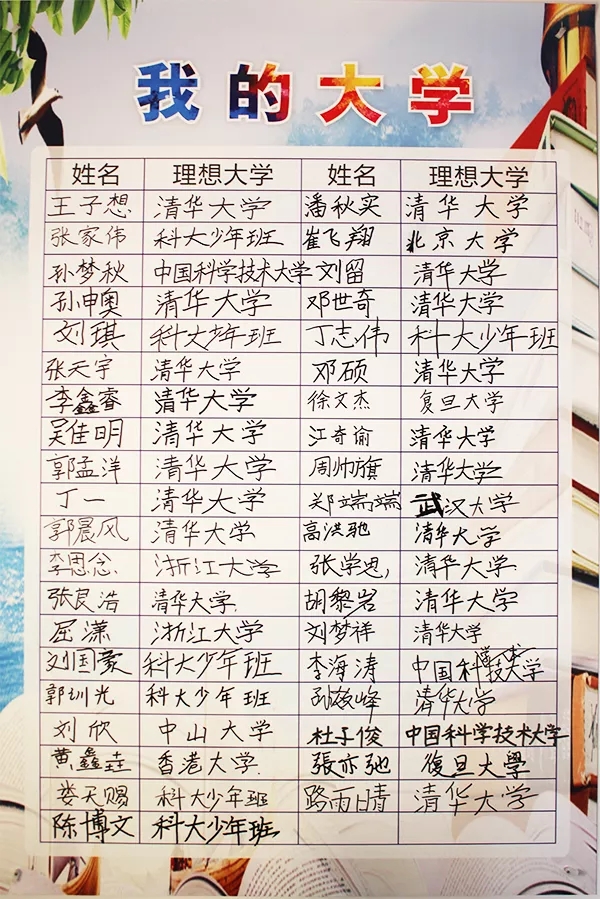 我的大学
姓名 理想大学 姓名 理想大学
王子想 清华大学 潘秋实 清华大学
张家伟 科大少年班 崔飞翔 北京大学
孙梦秋 中国科学技术大学 刘留 清华大学
孙申奥 清华大学 邓世奇 清华大学
刘琪 科大少年班 丁志伟 科大少年班
张天宇 清华大学 邓硕 清华大学
李鑫睿 清华大学 徐文杰 复旦大学
吴佳明 清华大学 江奇谕 清华大学
郭孟洋 清华大学 周帅旗 清华大学
丁一 清华大学 郑端端 武汉大学
郭晨风 清华大学 高洪驰 清华大学
李思念 浙江大学 张学思 清华大学
张良浩 清华大学 胡黎岩 清华大学
屈潇 浙江大学 刘梦祥 清华大学
刘国豪 科大少年班 李海涛 中国科学技术大学
郭圳光 科大少年班 峰 清华大学
刘欣 中山大学 杜子俊 中国科学技术大学
黄鑫垚 香港大学 張亦弛 復旦大學
娄天赐 科大少年班 路雨晴 清华大学
陈博文 科大少年班